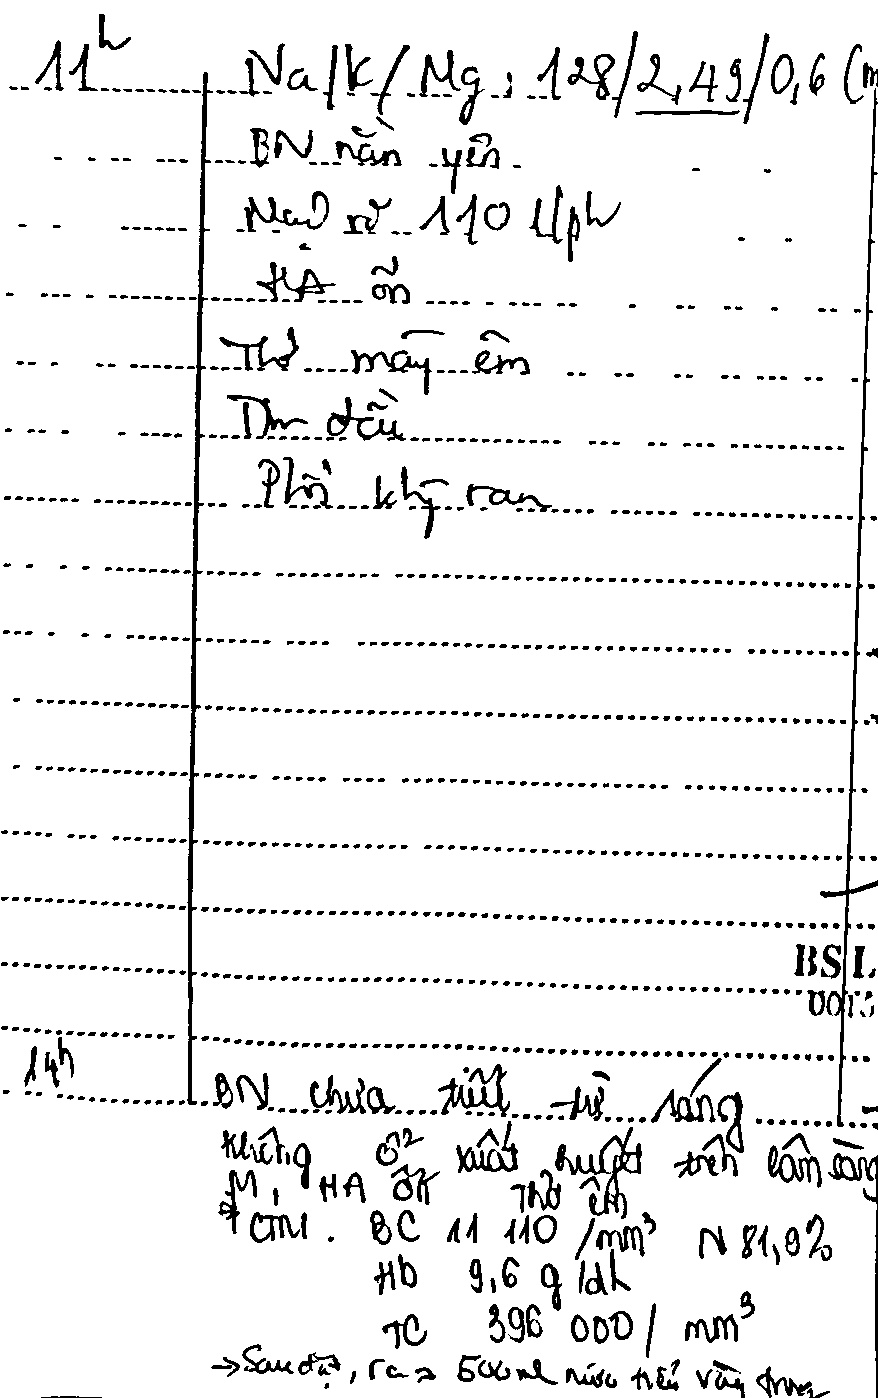 11h Na/K/Mg: 128/2,49/0,6 (m
BN nằm yên
Mạch rõ 110 l/ph
HA ổn
Thở máy êm
Tim đều
Phổi không ran
BS L
14h BN chưa tiểu từ sáng
Không ổ² xuất huyết trên lâm sàng
M, HA ổn Thở êm
CTM. BC 11 110 /mm³ N 81,9%
Hb 9,6 g/dl
TC 396 000 / mm³
→ Sau đặt, ra 500ml nước tiểu vàng trong